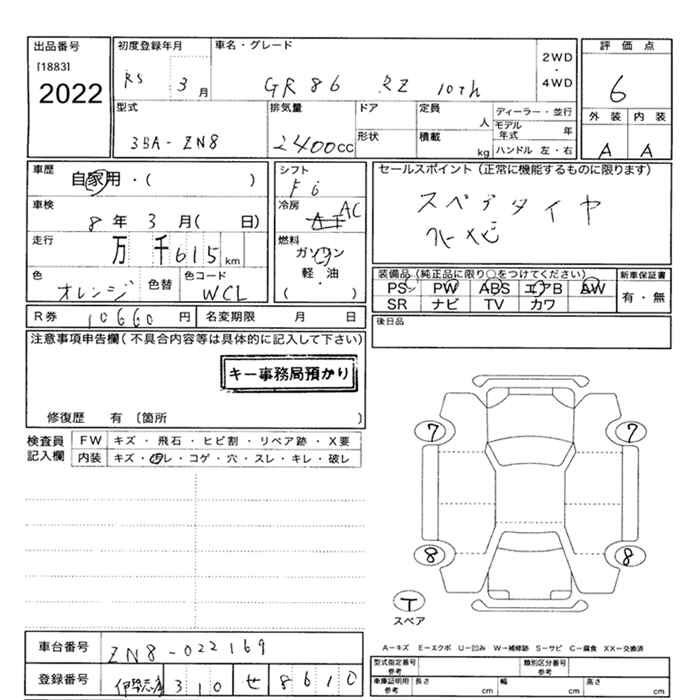 出品番号 初度登録年月 車名・グレード 評価点
[1883] R5 3月 GR86 RZ 10th 2WD・4WD 6
2022
型式 排気量 ドア 定員 人 ディーラー・並行 外装 内装
3BA-ZN8 2400cc 形状 積載 kg モデル年式 年 A A
ハンドル 左・右
車歴 シフト セールスポイント(正常に機能するものに限ります)
自家用・( ) F6 スペアタイヤ
車検 冷房
8年 3月( 日) AC
走行 燃料
万 千615km ガソリン
軽・油
( )
装備品(純正品に限り○をつけてください) 新車保証書
PS PW ABS エアB AW 有・無
SR ナビ TV カワ
色 色替 色コード
オレンジ WCL
R券 10660円 名変期限 月 日 後日品
注意事項申告欄(不具合内容等は具体的に記入して下さい)
キー事務局預かり
修復歴 有 〔箇所 〕
検査員記入欄 FW キズ・飛石・ヒビ割・リペア跡・X要
内装 キズ・汚レ・コゲ・穴・スレ・キレ・破レ
7 7
8 8
T
スペア
車台番号 ZN8-022169
A−キズ E−エクボ U−凹み W−補修跡 S−サビ C−腐食 XX−交換済
登録番号 伊勢志摩 310 せ 8610
型式指定番号 参考 類別区分番号 参考
車庫証明用 参考 長さ cm 幅 cm 高さ cm